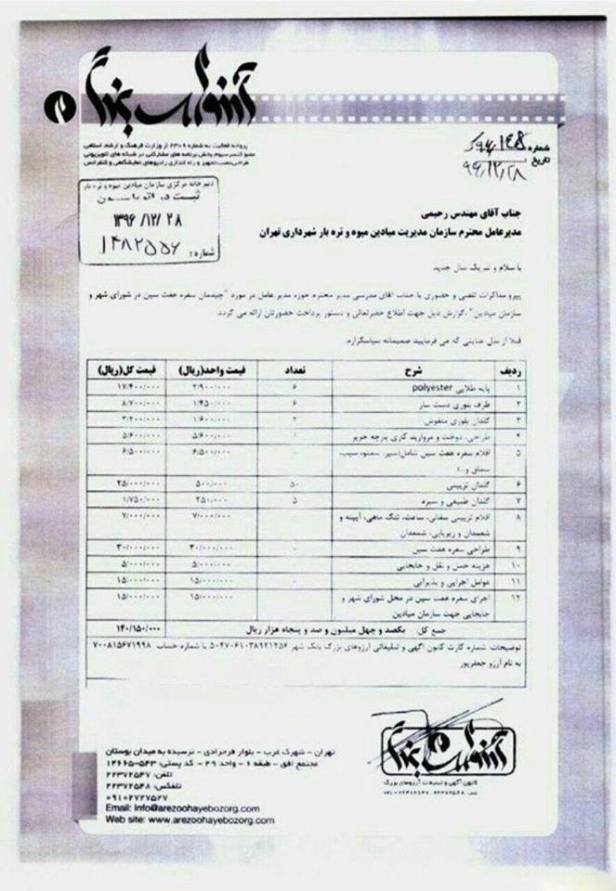 آرزوهای بزرگ
پروانه فعالیت به شماره ۲۳۰۹ از وزارت فرهنگ و ارشاد اسلامی
شماره
تاریخ ۹۶/۱۲/۲۸
دبیرخانه مرکزی سازمان میادین میوه و تره بار
۱۳۹۶/۱۲/۲۸
شماره: ۱۴۸۲۵۵۶
جناب آقای مهندس رحیمی
مدیرعامل محترم سازمان مدیریت میادین میوه و تره بار شهرداری تهران
با سلام و تبریک سال جدید
پیرو مذاکرات تلفنی و حضوری با جناب آقای مدرسی مدیر محترم حوزه مدیر عامل در مورد "چیدمان سفره هفت سین در شورای شهر و
سازمان میادین" ،گزارش ذیل جهت اطلاع حضرتعالی و دستور پرداخت حضورتان ارائه می گردد.
قبلا از بذل عنایتی که می فرمایید صمیمانه سپاسگزارم.
ردیف شرح تعداد قیمت واحد(ریال) قیمت کل(ریال)
۱ پایه طلایی polyester ۶ ۲/۹۰۰/۰۰۰ ۱۷/۴۰۰/۰۰۰
۲ ظرف بلوری دست ساز ۶ ۱/۴۵۰/۰۰۰ ۸/۷۰۰/۰۰۰
۳ گلدان بلوری منقوش ۲ ۱/۶۰۰/۰۰۰ ۳/۲۰۰/۰۰۰
۴ طراحی، دوخت و مروارید کاری پارچه حریر - ۵/۶۰۰/۰۰۰ ۵/۶۰۰/۰۰۰
۵ اقلام سفره هفت سین شامل(سیر، سمنو، سیب، - ۶/۵۰۰/۰۰۰ ۶/۵۰۰/۰۰۰
سماق و...)
۶ گلدان تزیینی ۵۰ ۵۰۰/۰۰۰ ۲۵/۰۰۰/۰۰۰
۷ گلدان طبیعی و سبزه ۵ ۳۵۰/۰۰۰ ۱/۷۵۰/۰۰۰
۸ اقلام تزیینی سفالی، ساعت، تنگ ماهی، آیینه و - ۷/۰۰۰/۰۰۰ ۷/۰۰۰/۰۰۰
شمعدان و زیرپایی، شمعدان
۹ طراحی سفره هفت سین - ۳۰/۰۰۰/۰۰۰ ۳۰/۰۰۰/۰۰۰
۱۰ هزینه حمل و نقل و جابجایی - ۵/۰۰۰/۰۰۰ ۵/۰۰۰/۰۰۰
۱۱ عوامل اجرایی و پذیرایی - ۱۵/۰۰۰/۰۰۰ ۱۵/۰۰۰/۰۰۰
۱۲ اجرای سفره هفت سین در محل شورای شهر و - ۱۵/۰۰۰/۰۰۰ ۱۵/۰۰۰/۰۰۰
جابجایی جهت سازمان میادین
جمع کل: یکصد و چهل میلیون و صد و پنجاه هزار ریال ۱۴۰/۱۵۰/۰۰۰
توضیحات: شماره کارت کانون آگهی و تبلیغاتی آرزوهای بزرگ بانک شهر ۵۰۴۷۰۶۱۰۳۸۹۲۱۲۵۶ با شماره حساب ۷۰۰۸۱۵۶۷۱۹۹۸
به نام آرزو جعفرپور
آرزوهای بزرگ
کانون آگهی و تبلیغات آرزوهای بزرگ
تهران - شهرک غرب - بلوار فرحزادی - نرسیده به میدان بوستان
مجتمع افق - طبقه ۶ - واحد ۲۹ - کد پستی: ۵۴۳-۱۴۶۶۵
تلفن: ۲۲۳۷۲۵۴۷
تلفکس: ۲۲۳۷۲۵۴۸
۰۹۱۰۲۷۲۷۵۲۷
Email: Info@arezoohayebozorg.com
Web site: www.arezoohayebozorg.com